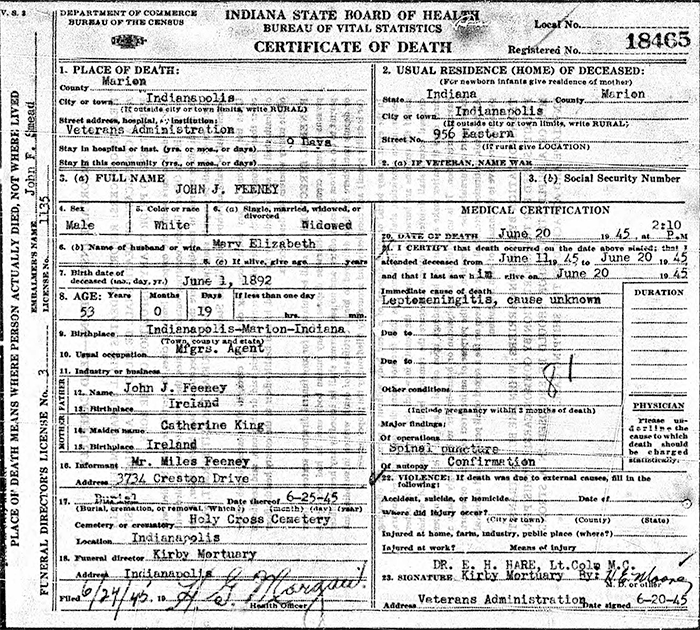 V. S. 3
DEPARTMENT OF COMMERCE
BUREAU OF THE CENSUS
INDIANA STATE BOARD OF HEALTH
BUREAU OF VITAL STATISTICS
CERTIFICATE OF DEATH
Local No.
Registered No. 18465
PLACE OF DEATH MEANS WHERE PERSON ACTUALLY DIED, NOT WHERE LIVED
EMBALMER'S NAME John F. Smead
LICENSE No. 1135
FUNERAL DIRECTOR'S LICENSE No. 3
1. PLACE OF DEATH:
County Marion
City or town Indianapolis
(If outside city or town limits, write RURAL)
Street address, hospital, or institution:
Veterans Administration
Stay in hospital or inst. (yrs., or mos., or days) 9 Days
Stay in this community (yrs., or mos., or days)
2. USUAL RESIDENCE (HOME) OF DECEASED:
(For newborn infants give residence of mother)
State Indiana County Marion
City or town Indianapolis
(If outside city or town limits, write RURAL)
Street No. 956 Eastern
(If rural give LOCATION)
2. (a) IF VETERAN, NAME WAR
3. (a) FULL NAME
JOHN J. FEENEY
3. (b) Social Security Number
4. Sex
Male
5. Color or race
White
6. (a) Single, married, widowed, or
divorced
Widowed
6. (b) Name of husband or wife Mary Elizabeth
6. (c) If alive, give age years
7. Birth date of
deceased (mo., day, yr.) June 1, 1892
8. AGE: Years Months Days If less than one day
53 0 19 hrs. min.
9. Birthplace Indianapolis-Marion-Indiana
(Town, county and state)
10. Usual occupation Mfgrs. Agent
11. Industry or business
FATHER
12. Name John J. Feeney
13. Birthplace Ireland
MOTHER
14. Maiden name Catherine King
15. Birthplace Ireland
16. Informant Mr. Miles Feeney
Address 3734 Creston Drive
17. Burial Date thereof 6-25-45
(Burial, cremation, or removal. Which?) (month) (day) (year)
Cemetery or crematory Holy Cross Cemetery
Location Indianapolis
18. Funeral director Kirby Mortuary
Address Indianapolis
Filed 6/24/45 19
Health Officer
MEDICAL CERTIFICATION
2:10
20. DATE OF DEATH June 20 19 45, at
21. I CERTIFY that death occurred on the date above stated; that I
attended deceased from June 11 19 45 to June 20 19 45
and that I last saw him alive on June 20 19 45
Immediate cause of death
Leptomeningitis, cause unknown
DURATION
Due to
Due to
81
Other conditions
(Include pregnancy within 3 months of death)
Major findings:
Of operations
Spinal puncture
Of autopsy Confirmation
PHYSICIAN
Please un-
derline the
cause to which
death should
be charged
statistically.
22. VIOLENCE: If death was due to external causes, fill in the
following:
Accident, suicide, or homicide Date of
Where did injury occur?
(City or town) (County) (State)
Injured at home, farm, industry, public place (where?)
Injured at work? Means of injury
DR. E. H. HARE, Lt.Colm M.C.
23. SIGNATURE Kirby Mortuary By:
M. D. or other
Address Veterans Administration Date signed 6-20-45